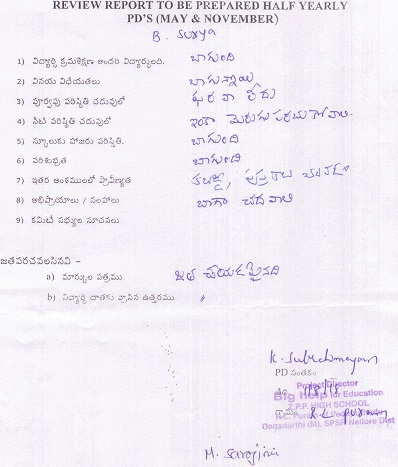 REVIEW REPORT TO BE PREPARED HALF YEARLY
PD'S (MAY & NOVEMBER)
B. Surya
1) విద్యార్థి క్రమశిక్షణ అందరి విద్యార్థులది. బాగుంది
2) వినయ విధేయతలు బాగున్నాయి
3) పూర్వపు పరిస్థితి చదువులో పరవాలేదు
4) నేటి పరిస్థితి చదువులో ఇంకా మెరుగుపరచుకోవాలి.
5) స్కూలుకు హాజరు పరిస్థితి. బాగుంది
6) పరిశుభ్రత బాగుంది
7) ఇతర అంశములలో ప్రావీణ్యత
8) అభిప్రాయాలు / సలహాలు బాగా చదవాలి
9) కమిటీ సభ్యుల సూచనలు
జతపరచవలసినవి –
a) మార్కుల పత్రము జత చేయడమైనది
b) విద్యార్థి దాతకు వ్రాసిన ఉత్తరము "
K. Subrahmanyam
PD సంతకం
Project Director
Big Help for Education
Z.P.P. HIGH SCHOOL
గ్రామం R L Puram
Dagadarthi (M), SPSR Nellore Dist
M. Sarojini